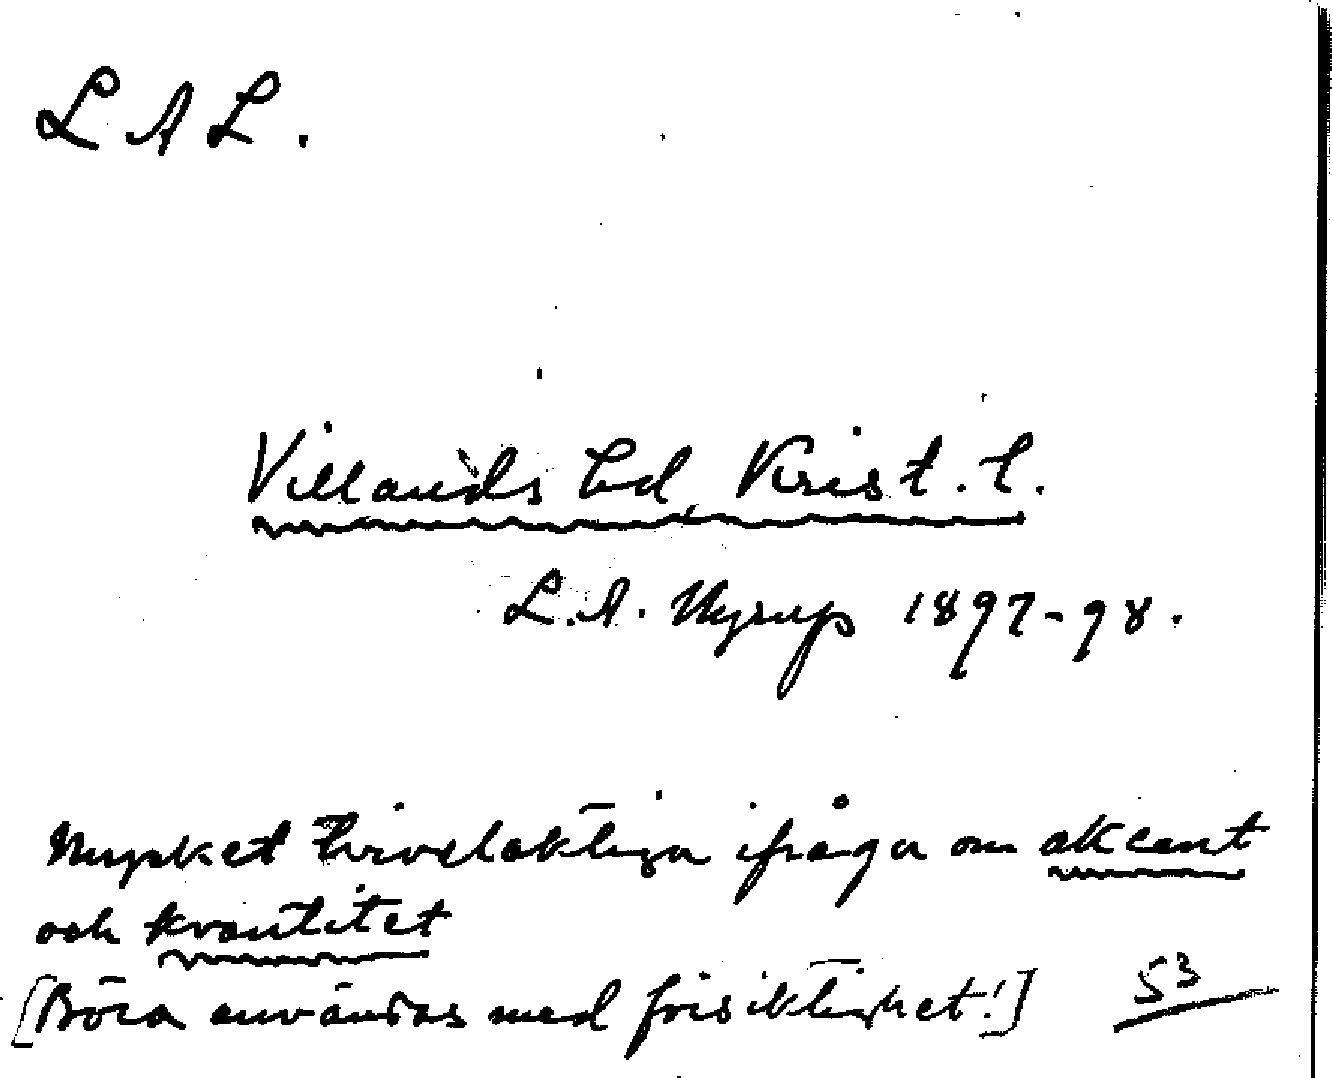 L A L.
Villands hd, Krist. l.
L. A. Nyrup 1897-98.
Mycket tvivelaktiga ifråga om akcent
och kvantitet
[Böra användas med försiktighet!] 53